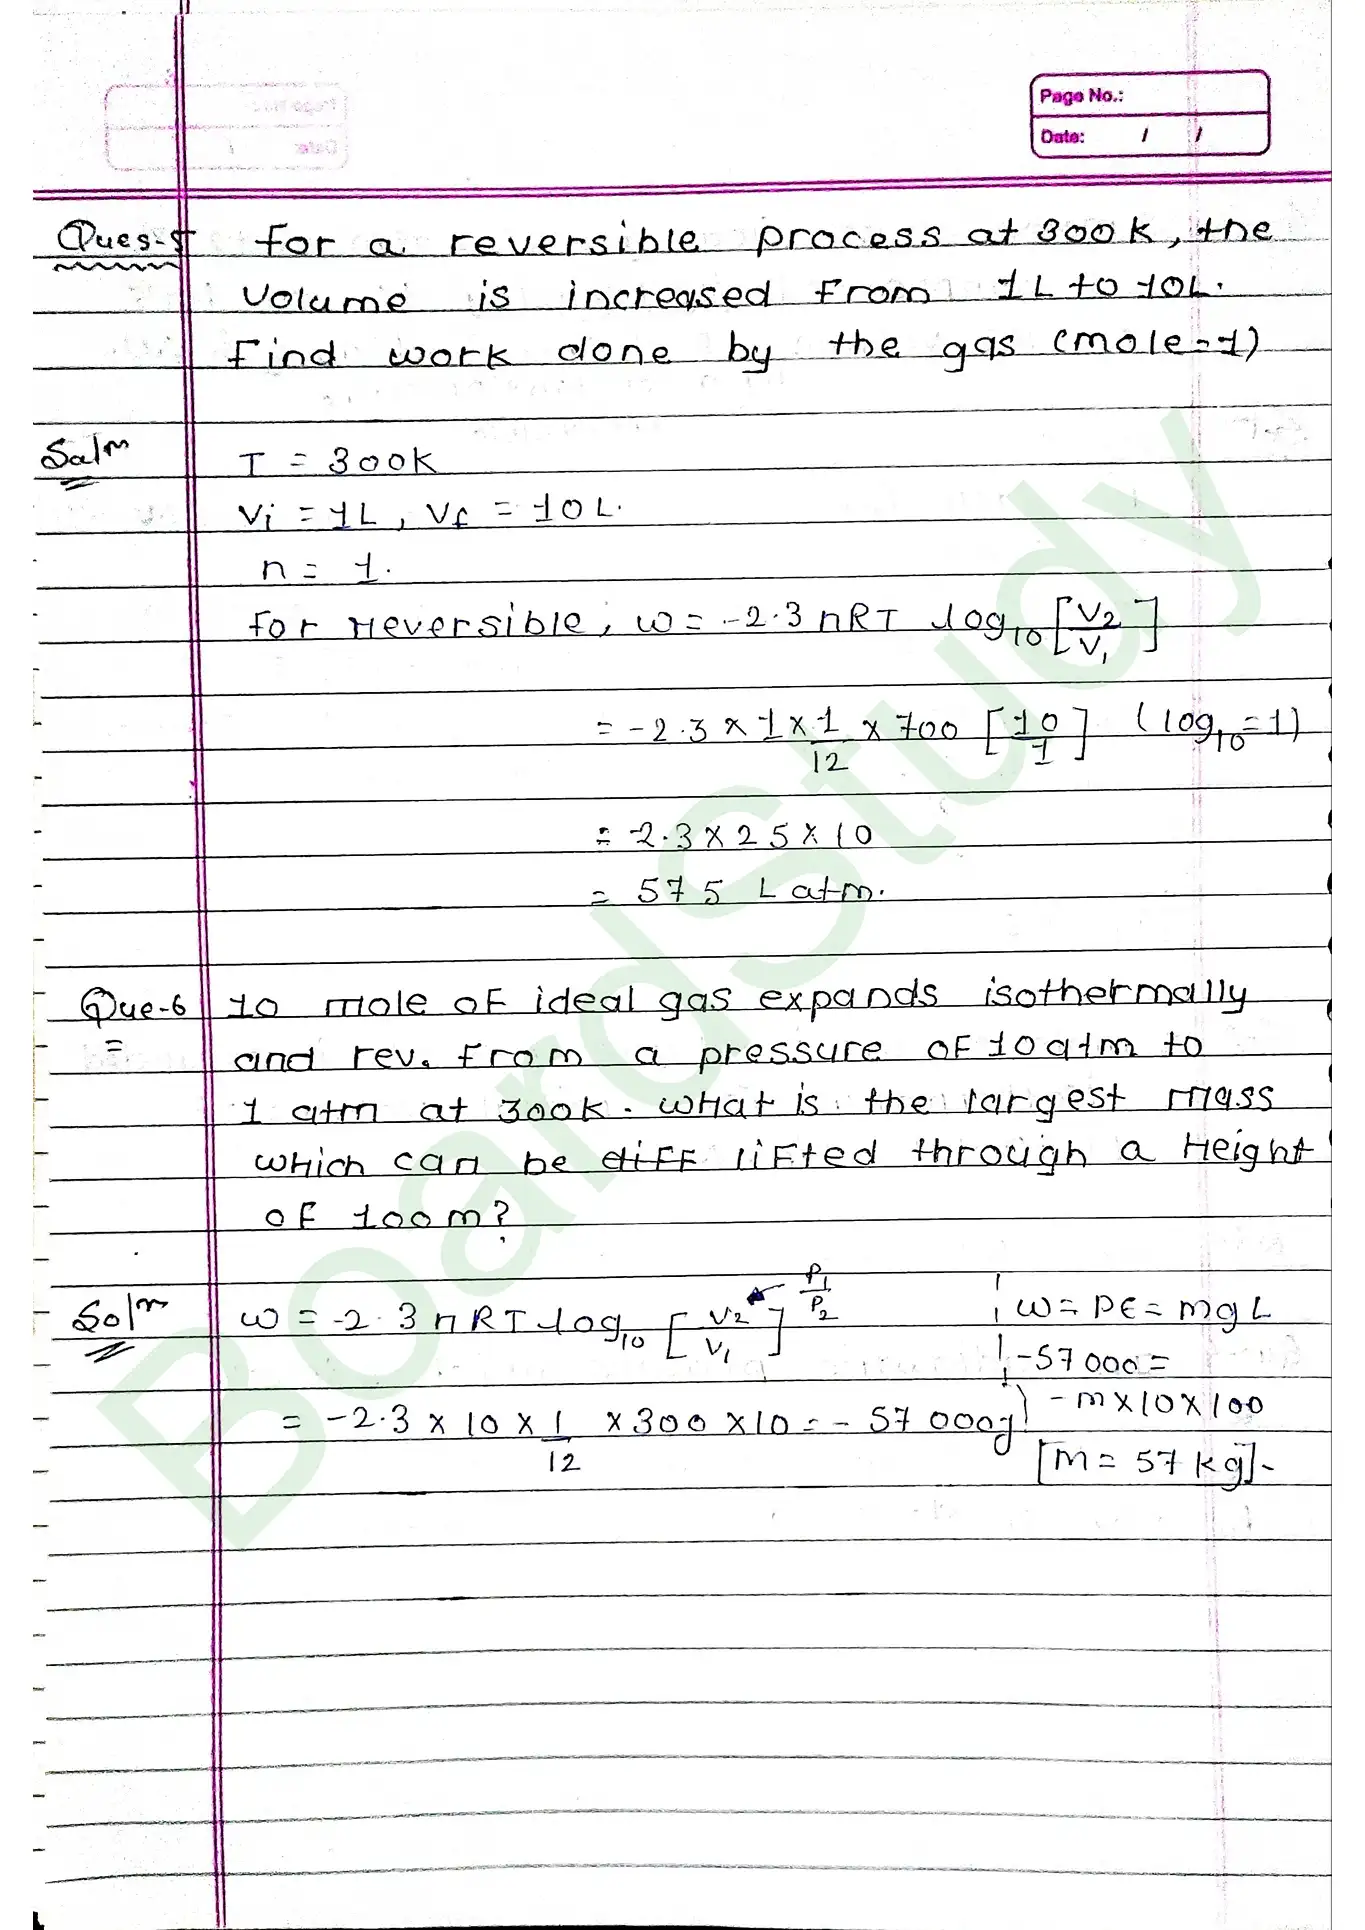 Page No.:
Date: / /
Ques-5 for a reversible process at 300K, the
volume is increased from 1L to 10L.
Find work done by the gas (mole=1)
Solⁿ T = 300K
Vi = 1L, Vf = 10L.
n = 1.
for reversible, w = -2.3 nRT log₁₀ [V₂/V₁]
= -2.3 × 1 × 1/12 × 700 [10/1] (log₁₀=1)
= -2.3 × 25 × 10
= 575 L atm.
Que-6 10 mole of ideal gas expands isothermally
and rev. from a pressure of 10 atm to
1 atm at 300K. what is the largest mass
which can be diff lifted through a Height
of 100m?
Solⁿ w = -2.3 nRT log₁₀ [V₂/V₁] P₁/P₂
= -2.3 × 10 × 1/12 × 300 × 10 = -57000j
w = PE = mgL
-57000 =
-m×10×100
[m = 57 kg].
BoardStudy